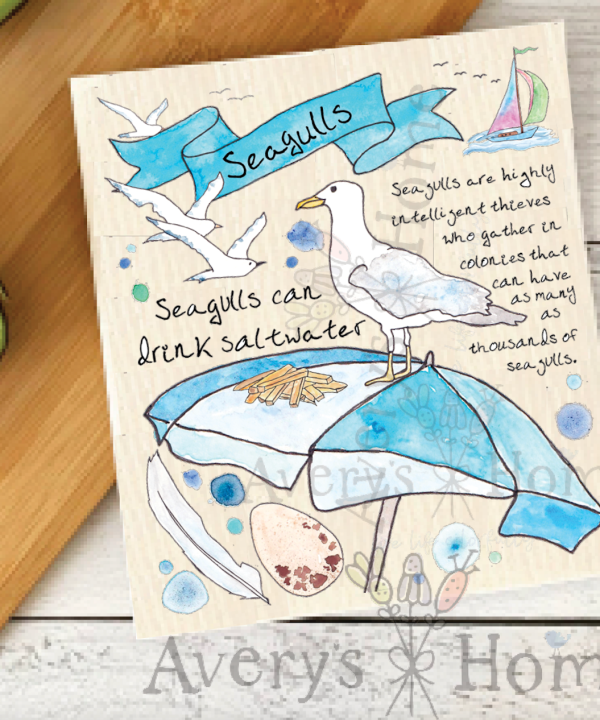 Seagulls
Seagulls are highly
intelligent thieves
who gather in
colonies that
can have
as many
as
thousands of
seagulls.
Seagulls can
drink saltwater
Averys Home
Averys Hom
Averys Hom